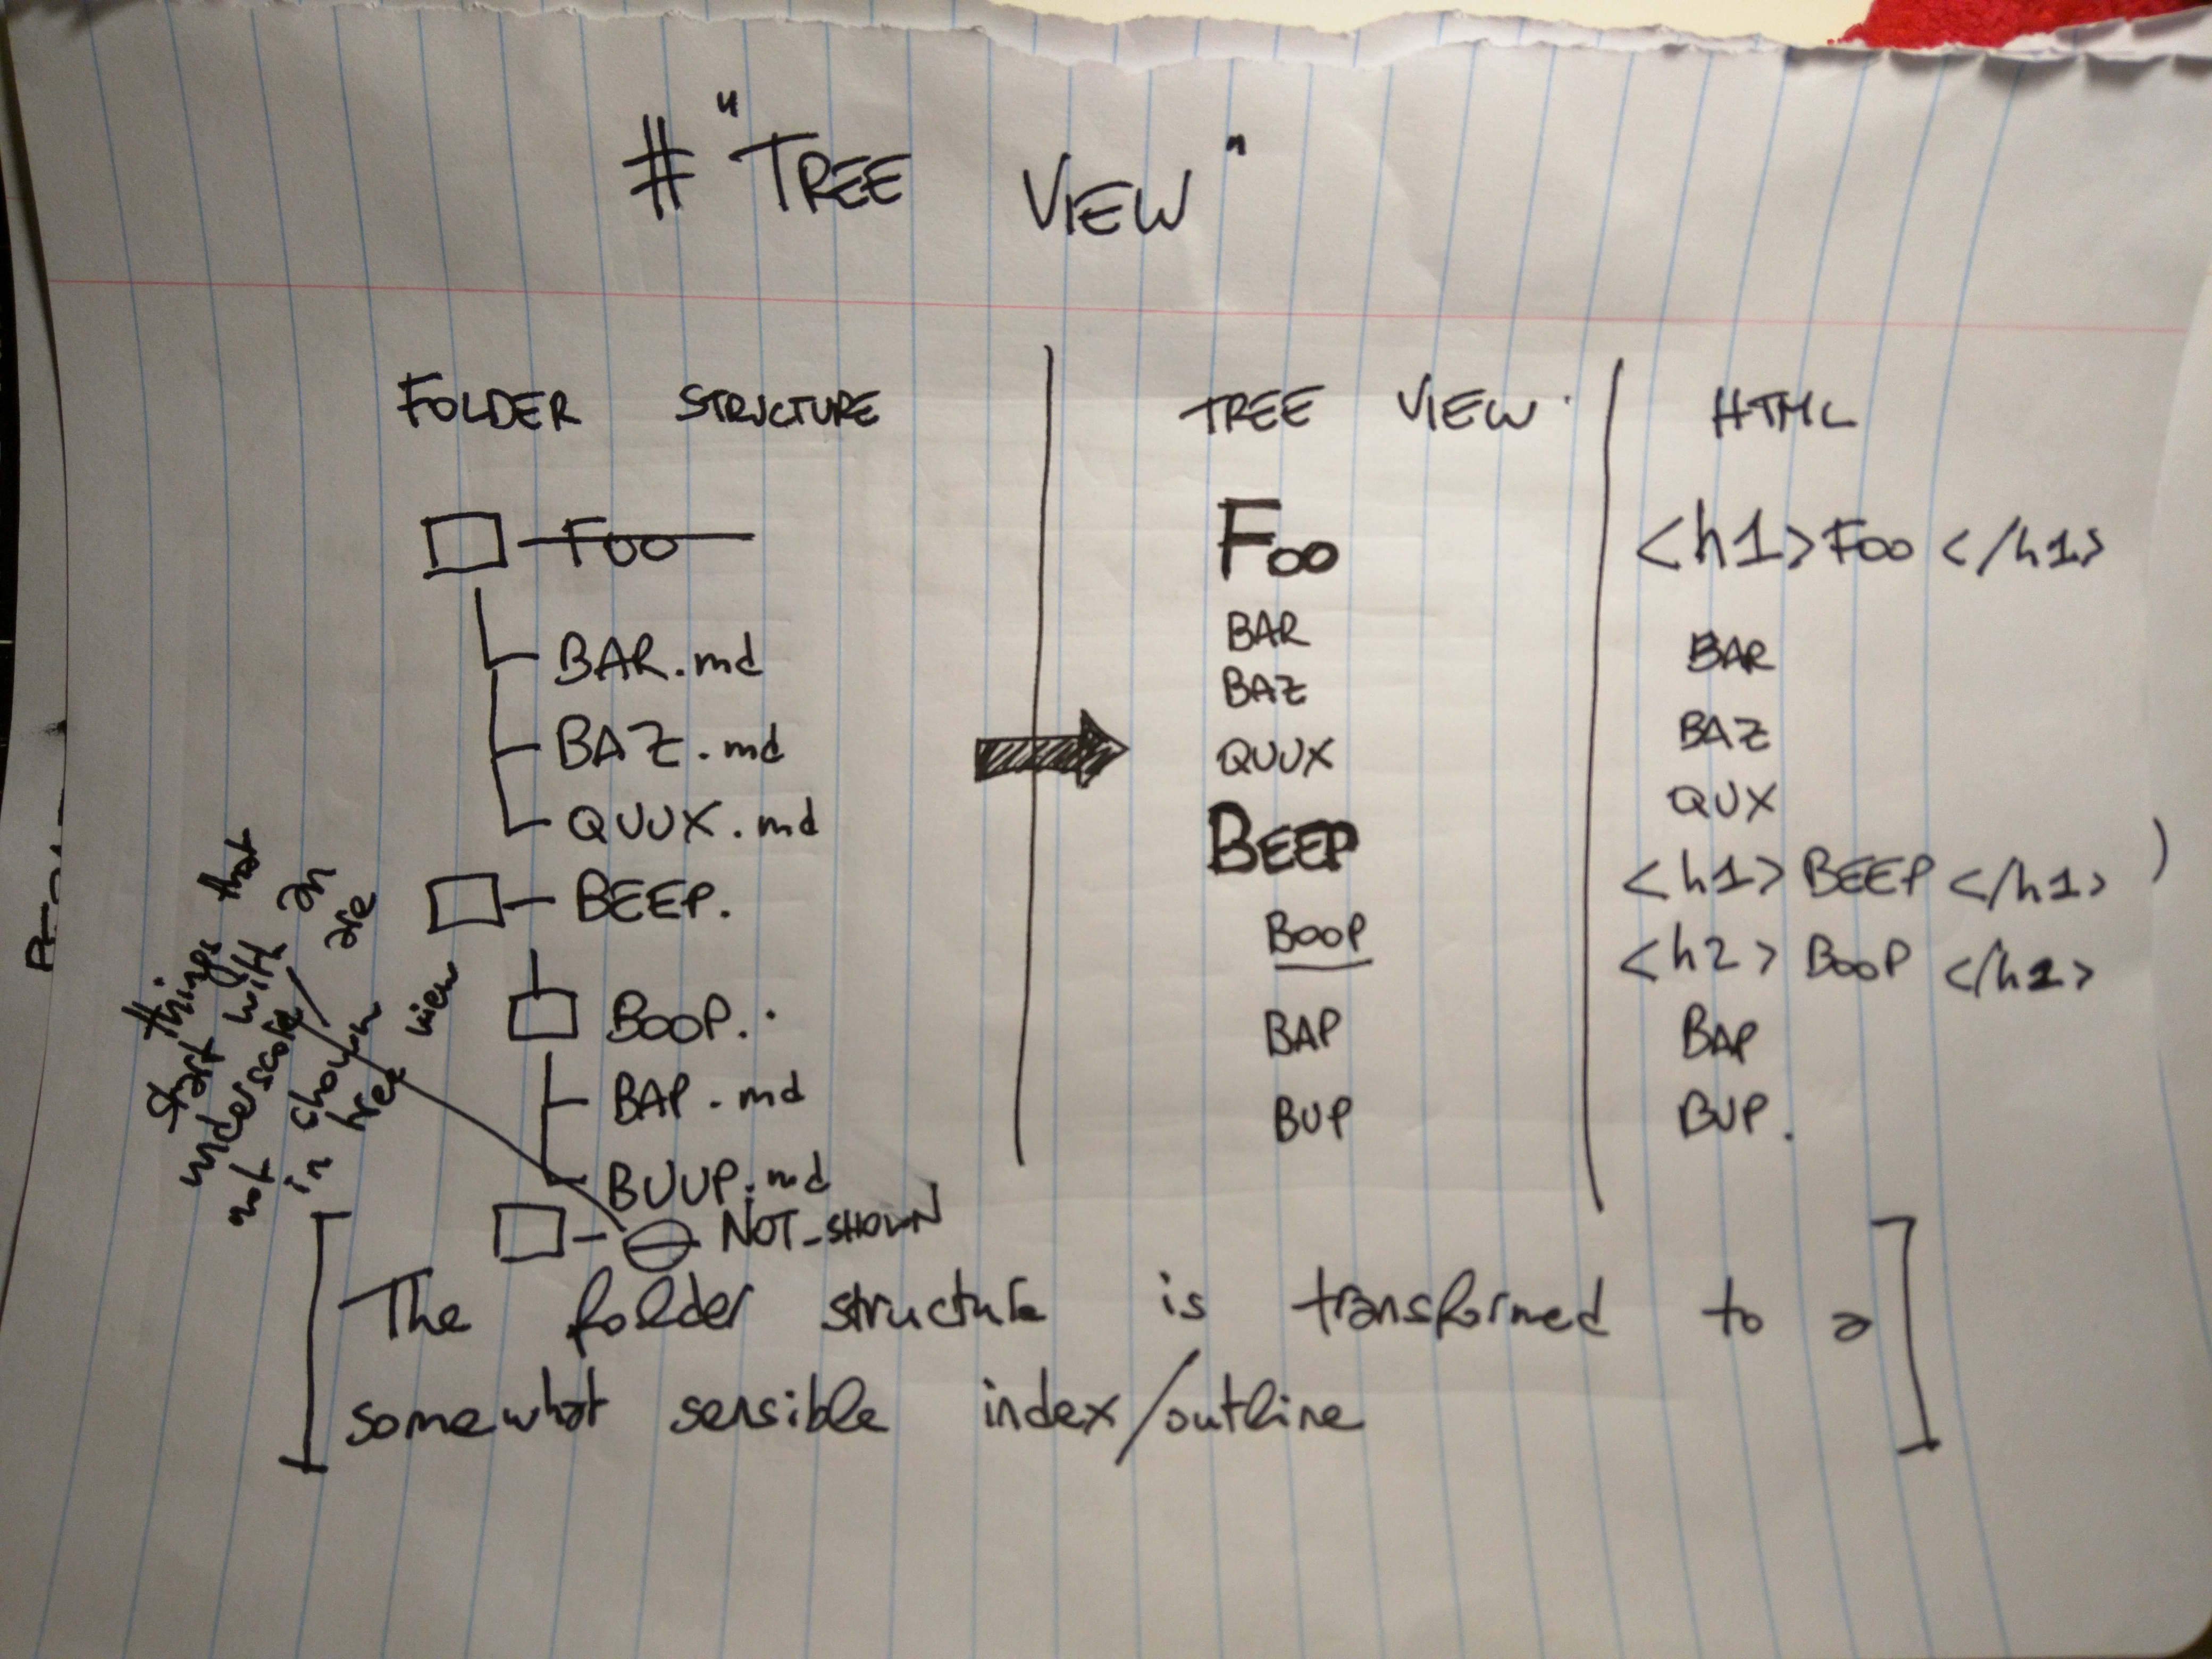 # "TREE VIEW"
FOLDER STRUCTURE
FOO
BAR.md
BAZ.md
QUUX.md
BEEP.
BOOP.
BAP.md
BUUP.md
_ NOT_SHOWN
things that
start with an
underscore are
not shown
in tree view
TREE VIEW
FOO
BAR
BAZ
QUUX
BEEP
BOOP
BAP
BUP
HTML
<h1>FOO</h1>
BAR
BAZ
QUX
<h1>BEEP</h1>
<h2>BOOP</h2>
BAP
BUP.
[The folder structure is transformed to a
somewhat sensible index/outline]